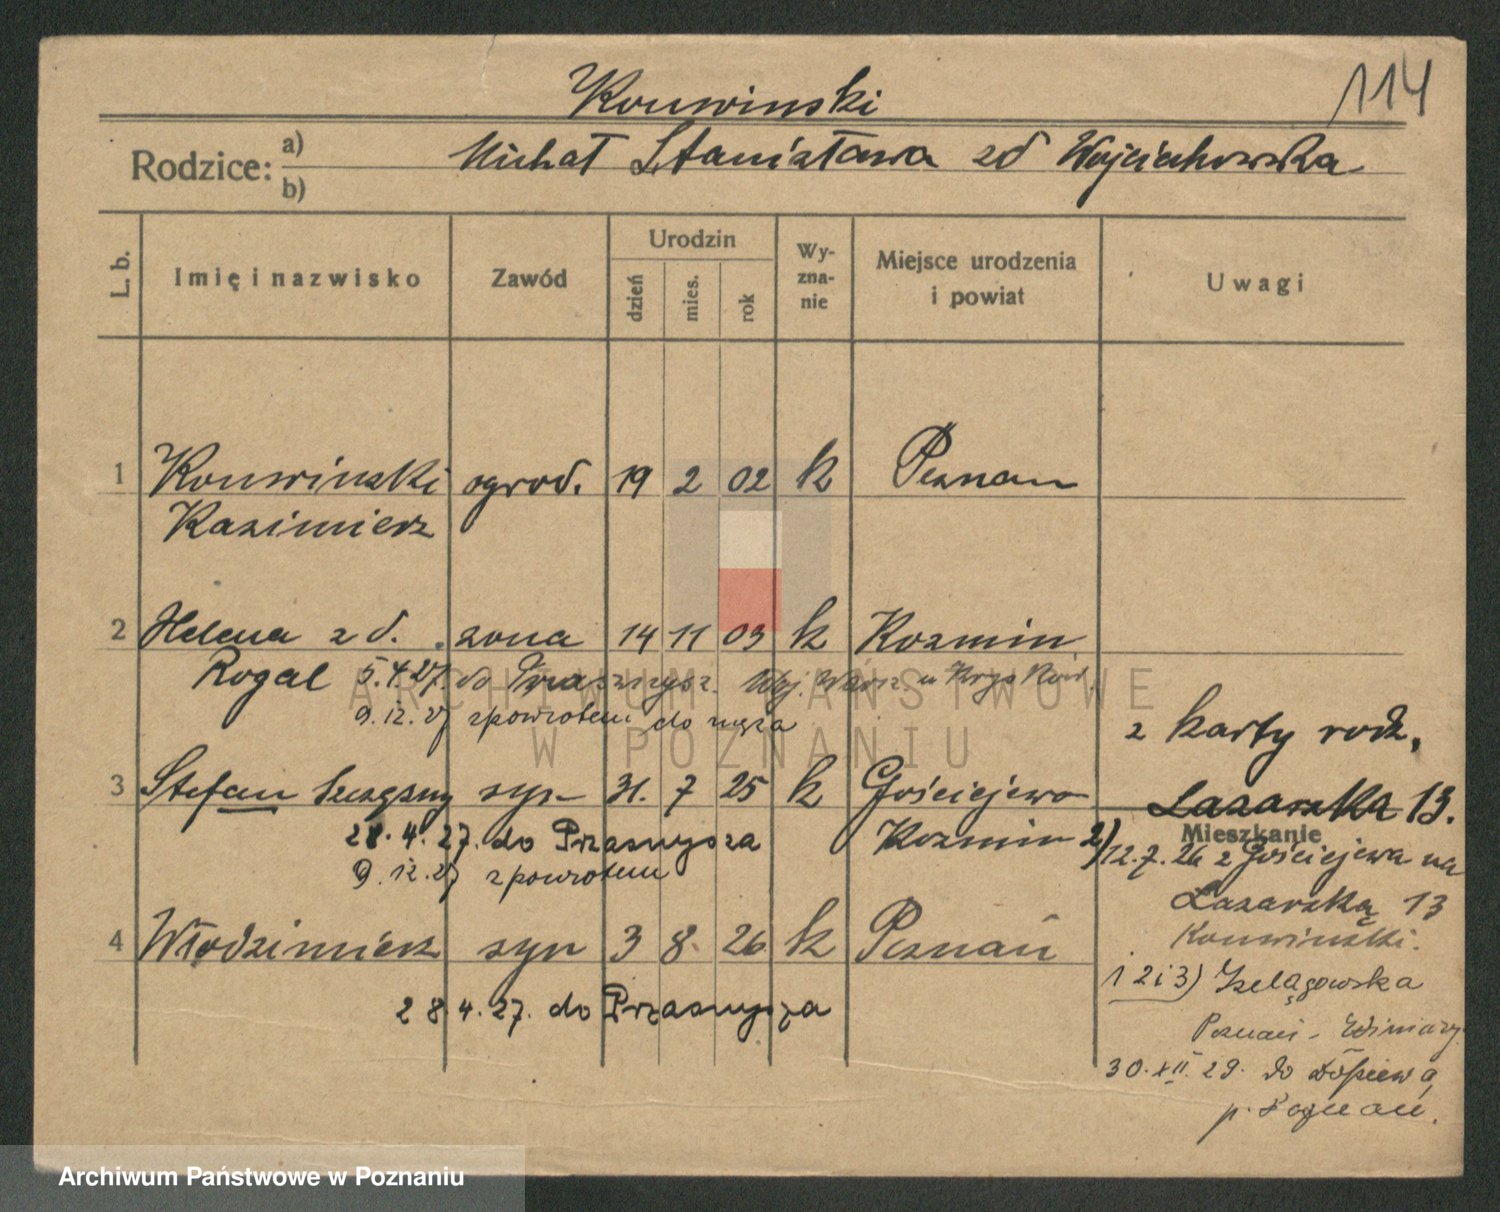 114
Konwinski
Rodzice: a) b)
Michał Stanisława zd Wojciechowska
L. b.
Imię i nazwisko
Zawód
Urodzin
dzień
mies.
rok
Wy-
zna-
nie
Miejsce urodzenia
i powiat
Uwagi
1 Konwinski ogrod. 19 2 02 k Poznan
Kazimierz
2 Helena zd. żona 14 11 03 k Kozmin
Rogal 5.4.27. do Prasznysz. Woj. Warsz. u
9.12.27 zpowrotem do męża
z karty rodz.
3 Stefan syn 31. 7 25 k Gościejewo
Łazarska 13.
28.4.27. do Przasnysza Kozmin
Mieszkanie
2) 12.7.26 z Gościejewa na
9.12.27 zpowrotem
Łazarską 13
4 Włodzimierz syn 3 8. 26 k Poznań
Konwinski.
1 2 i 3) Szelągowska
28.4.27. do Przasnysza
Poznań - Winiary
30.XII.29. do Dopiewa,
p. Poznań.
ARCHIWUM PAŃSTWOWE
W POZNANIU
Archiwum Państwowe w Poznaniu